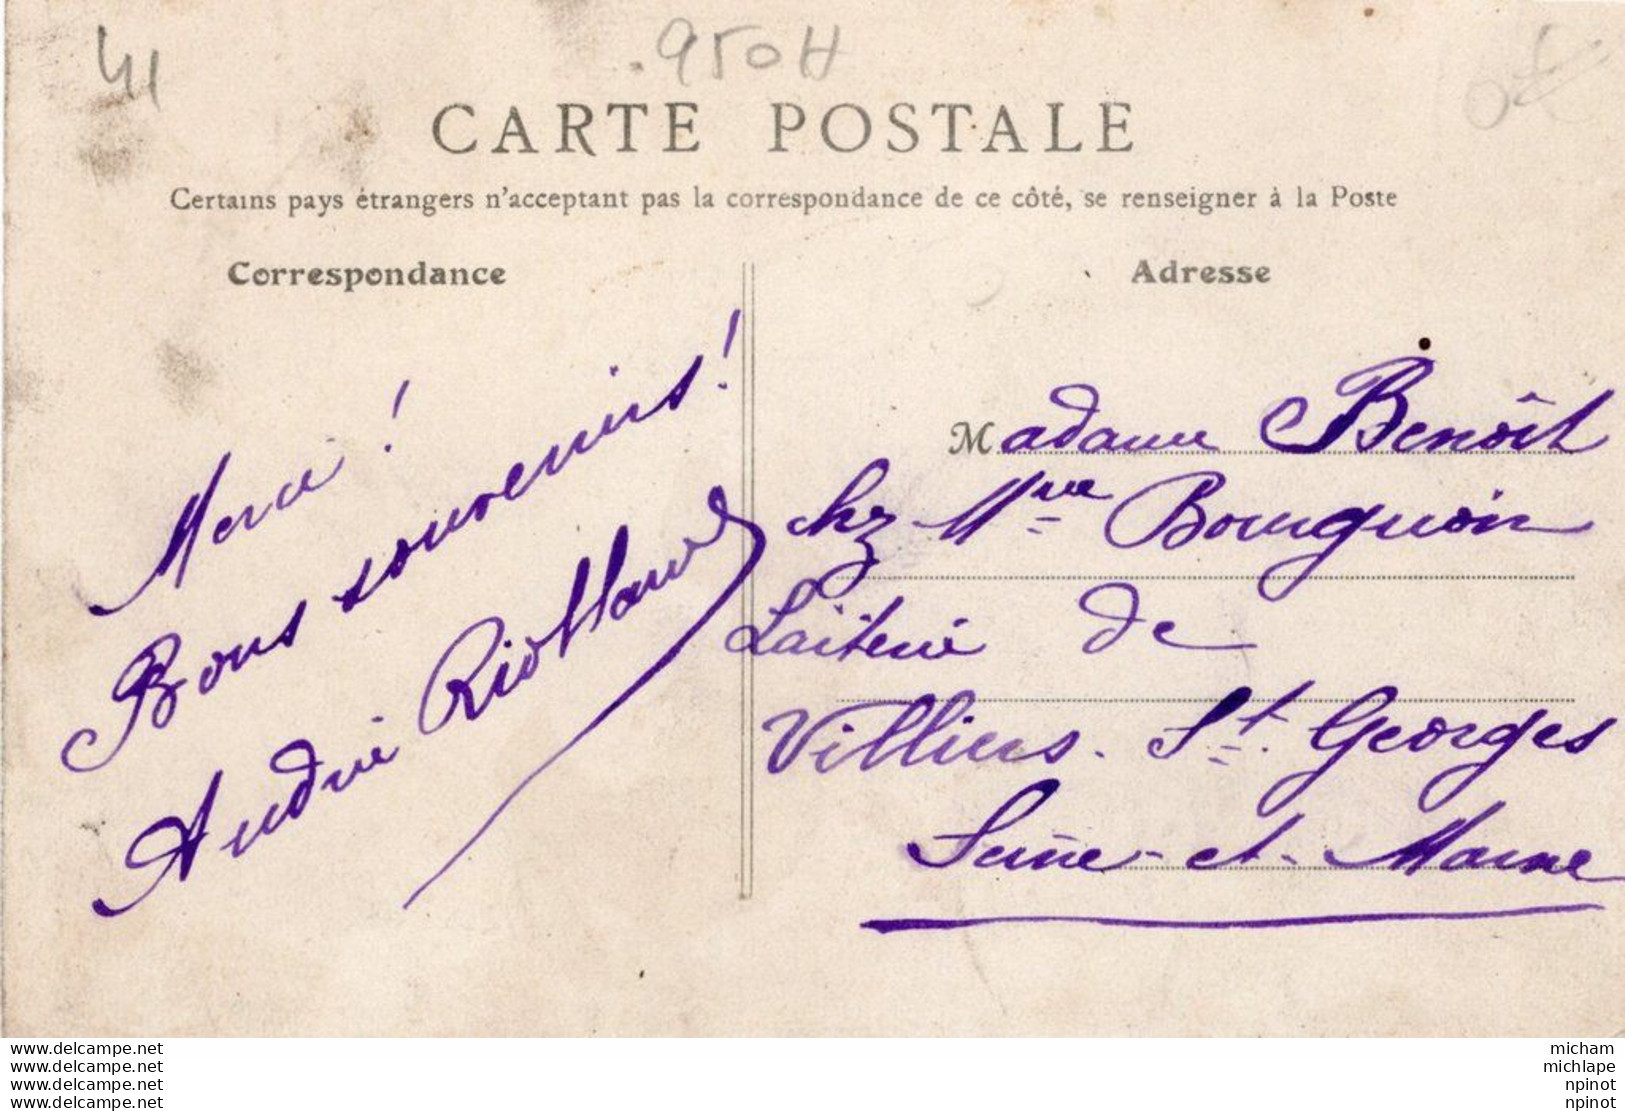 41
950H
CARTE POSTALE
Certains pays étrangers n'acceptant pas la correspondance de ce côté, se renseigner à la Poste
Correspondance
Adresse
Merci !
Bons souvenirs !
Madame Benoît
chz Mme Bourguoin
Laiterie de
Villiers. St. Georges
Seine-et-Marne
www.delcampe.net
www.delcampe.net
www.delcampe.net
www.delcampe.net
micham
michlape
npinot
npinot